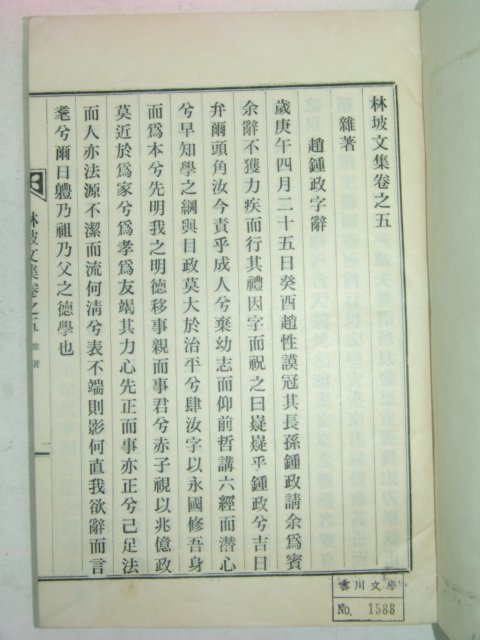 林坡文集卷之五
雜著
趙鍾政字辭
歲庚午四月二十五日癸酉趙性謨冠其長孫鍾政請余爲賓
余辭不獲力疾而行其禮因字而祝之曰嶷嶷乎鍾政兮吉日
弁爾頭角汝今責乎成人兮棄幼志而仰前哲講六經而潛心
兮早知學之綱與目政莫大於治平兮肆汝字以永國修吾身
而爲本兮先明我之明德移事親而事君兮赤子視以兆億政
莫近於爲家兮爲孝爲友竭其力心先正而事亦正兮己足法
而人亦法源不潔而流何淸兮表不端則影何直我欲辭而言
耄兮爾曰軆乃祖乃父之德學也
林坡文集卷之五 雜著
一
雲川文庫
No. 1588